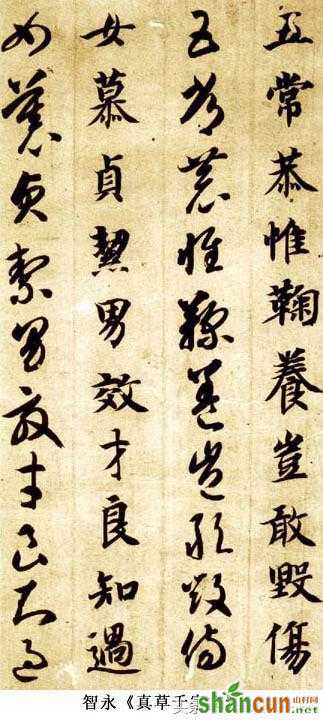 五常恭惟鞠養豈敢毀傷
五常恭惟鞠養豈敢毀傷
女慕貞絜男效才良知過
女慕貞絜男效才良知過
智永《真草千
shancun
山村网
.net